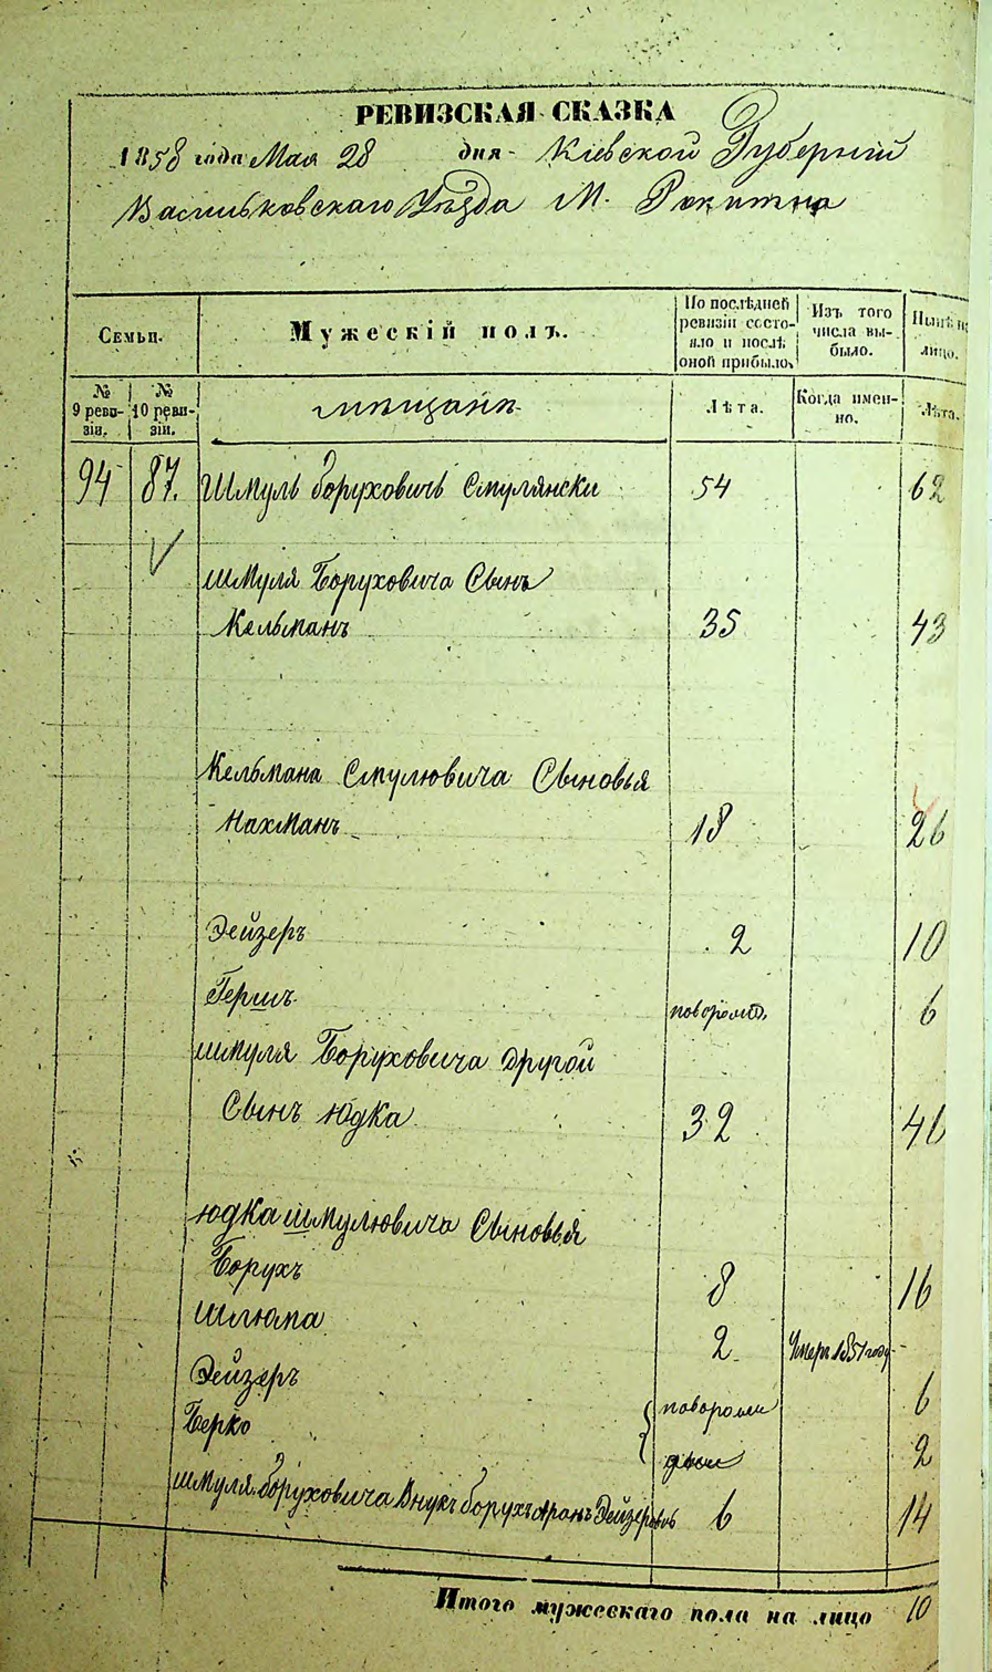 РЕВИЗСКАЯ СКАЗКА
1858 года Мая 28 дня Кіевской Губерніи
Васильковскаго Уѣзда М. Рокитна
Семьи.
Мужескій полъ.
По послѣдней ревизіи состояло и послѣ оной прибыло.
Изъ того числа выбыло.
Нынѣ на лицо.
№ 9 ревизіи.
№ 10 ревизіи.
мѣщане
Лѣта.
Когда именно.
Лѣта.
94 87. Шмуль Боруховичъ Смулянски 54 62
Шмуля Боруховича Сынъ
Кельманъ 35 43
Кельмана Смулювича Сыновья
Нахманъ 18 26
Эейзеръ 2 10
Гершъ 6
шмуля Боруховича другой
Сынъ Юдка 32 40
Юдка шмулювича Сыновья
Борухъ 8 16
Шлюма 2 Умеръ 1851 году
Эейзеръ 6
Берко 2
шмуля Боруховича Внукъ Борухъ 6 14
Итого мужескаго пола на лицо 10